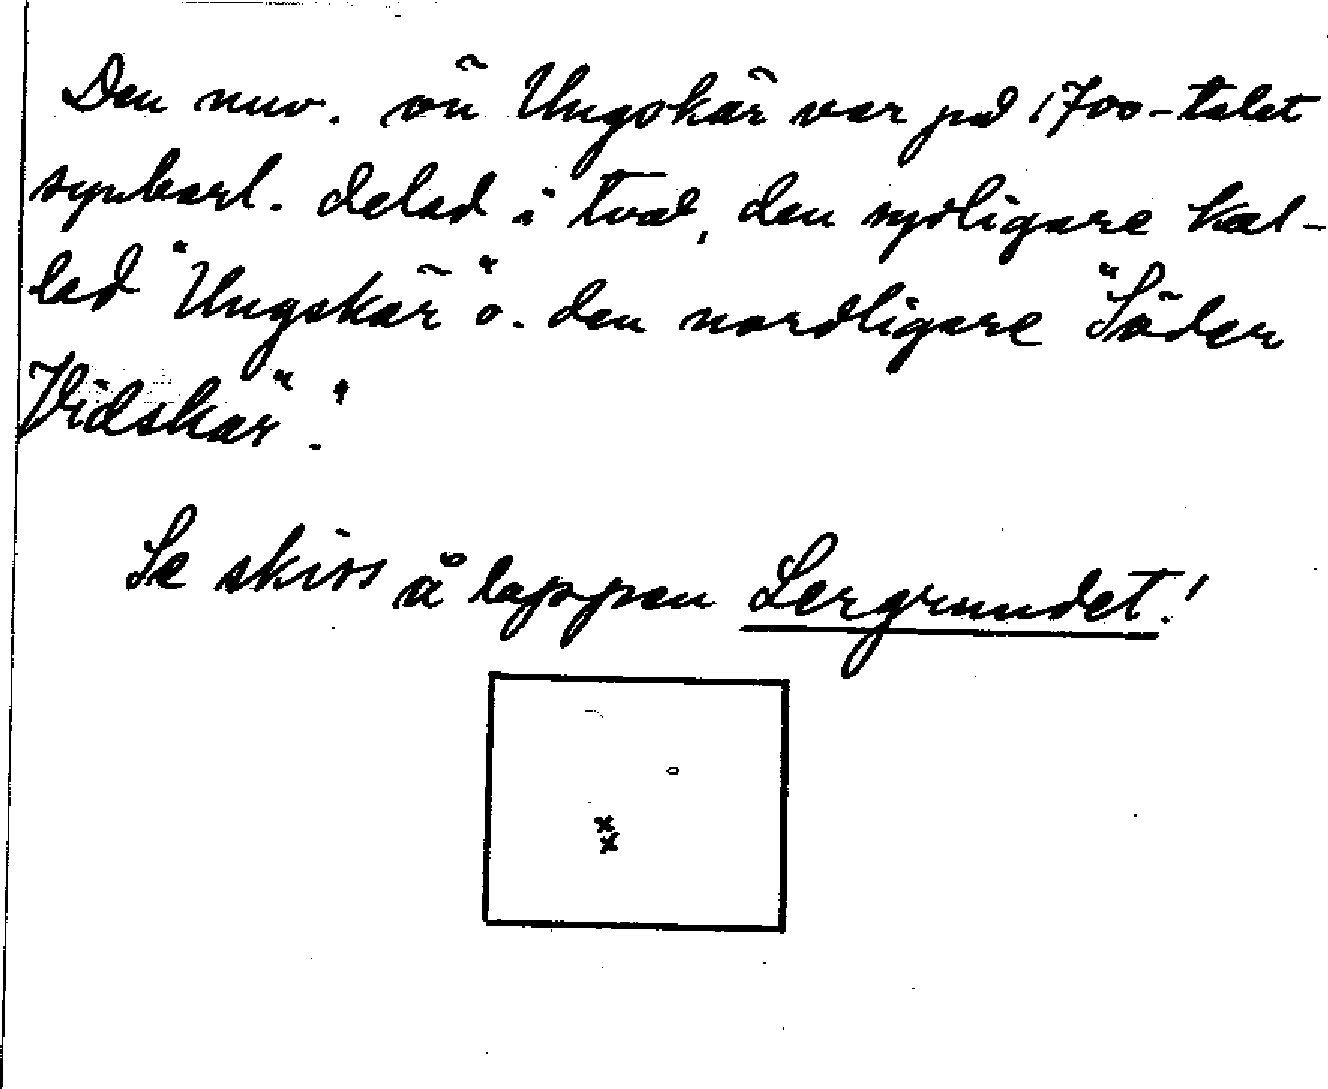 Den nuv. ön Ungskär var på 1700-talet
synbarl. delad i två, den sydligare kal-
lad "Ungskär" o. den nordligare "Söder
Vidskär".
Se skiss å lappen Lergrundet!